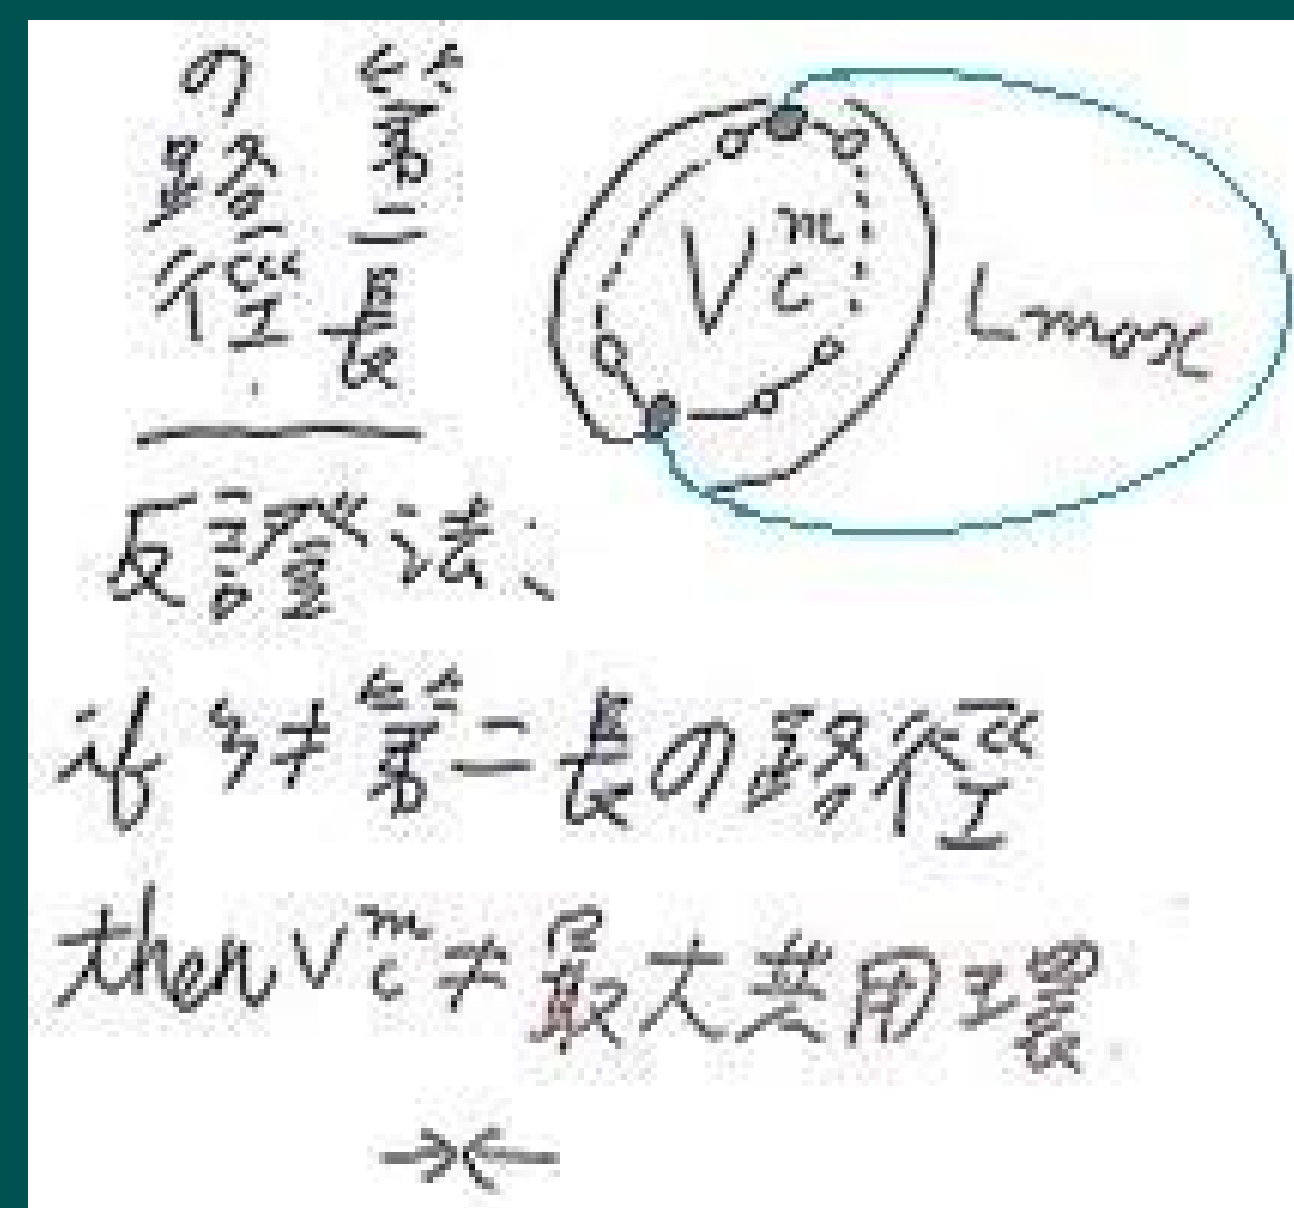 第二長
の路徑.
V_c^m
Lmax
反證法:
if ≠ 第二長の路徑
then V_c^m ≠ 最大共用環.
→←